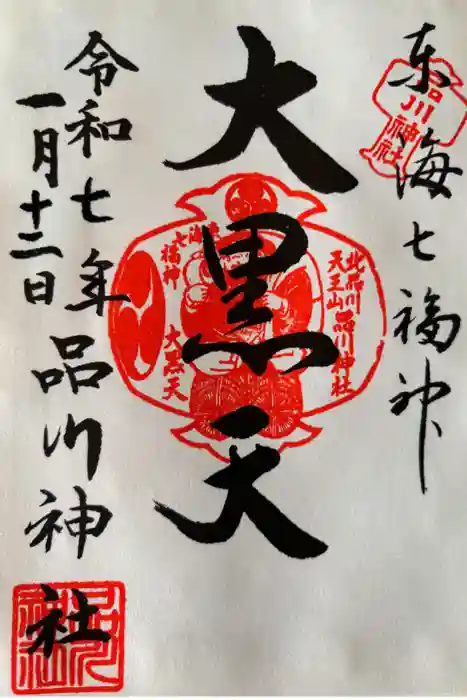 東海七福神
品川神社
大黒天
北品川
天王山 品川神社
東海
七福神
大黒天
令和七年
一月十二日
品川神社
品川神社